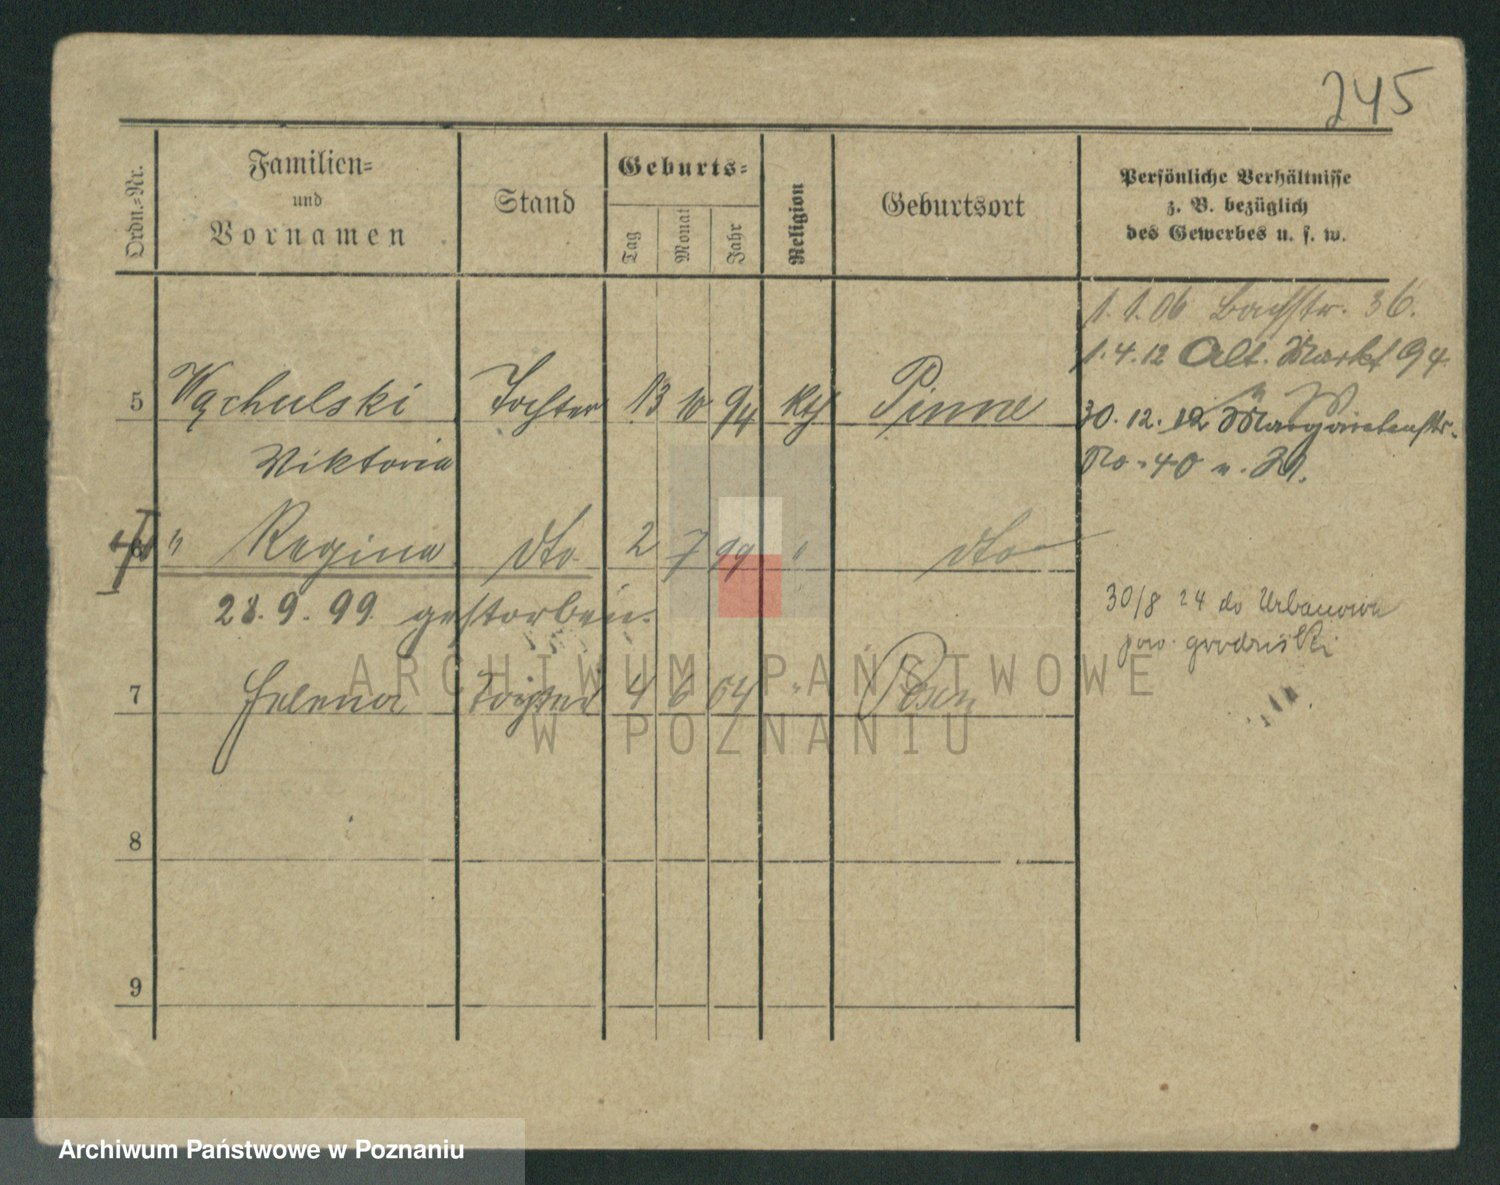 245
Ordn.=Nr.
Familien=
und
Vornamen
Stand
Geburts=
Tag
Monat
Jahr
Religion
Geburtsort
Persönliche Verhältnisse
z. B. bezüglich
des Gewerbes u. s. w.
1.1.06 Bachstr. 36.
1.4.12 Alt. Markt 94
5 Wąchulski Tochter 13 10 94 Kth Pinne
30.12.12 Margaretenstr.
Viktoria
No. 40 u.
6 " Regina dto 2 7 99 " dto
28.9.99 gestorben.
30/8 24 do Urbanowa
pow. grodziski
7 Helena Tochter 4 6 04 " Posen
8
9
ARCHIWUM PAŃSTWOWE
W POZNANIU
Archiwum Państwowe w Poznaniu